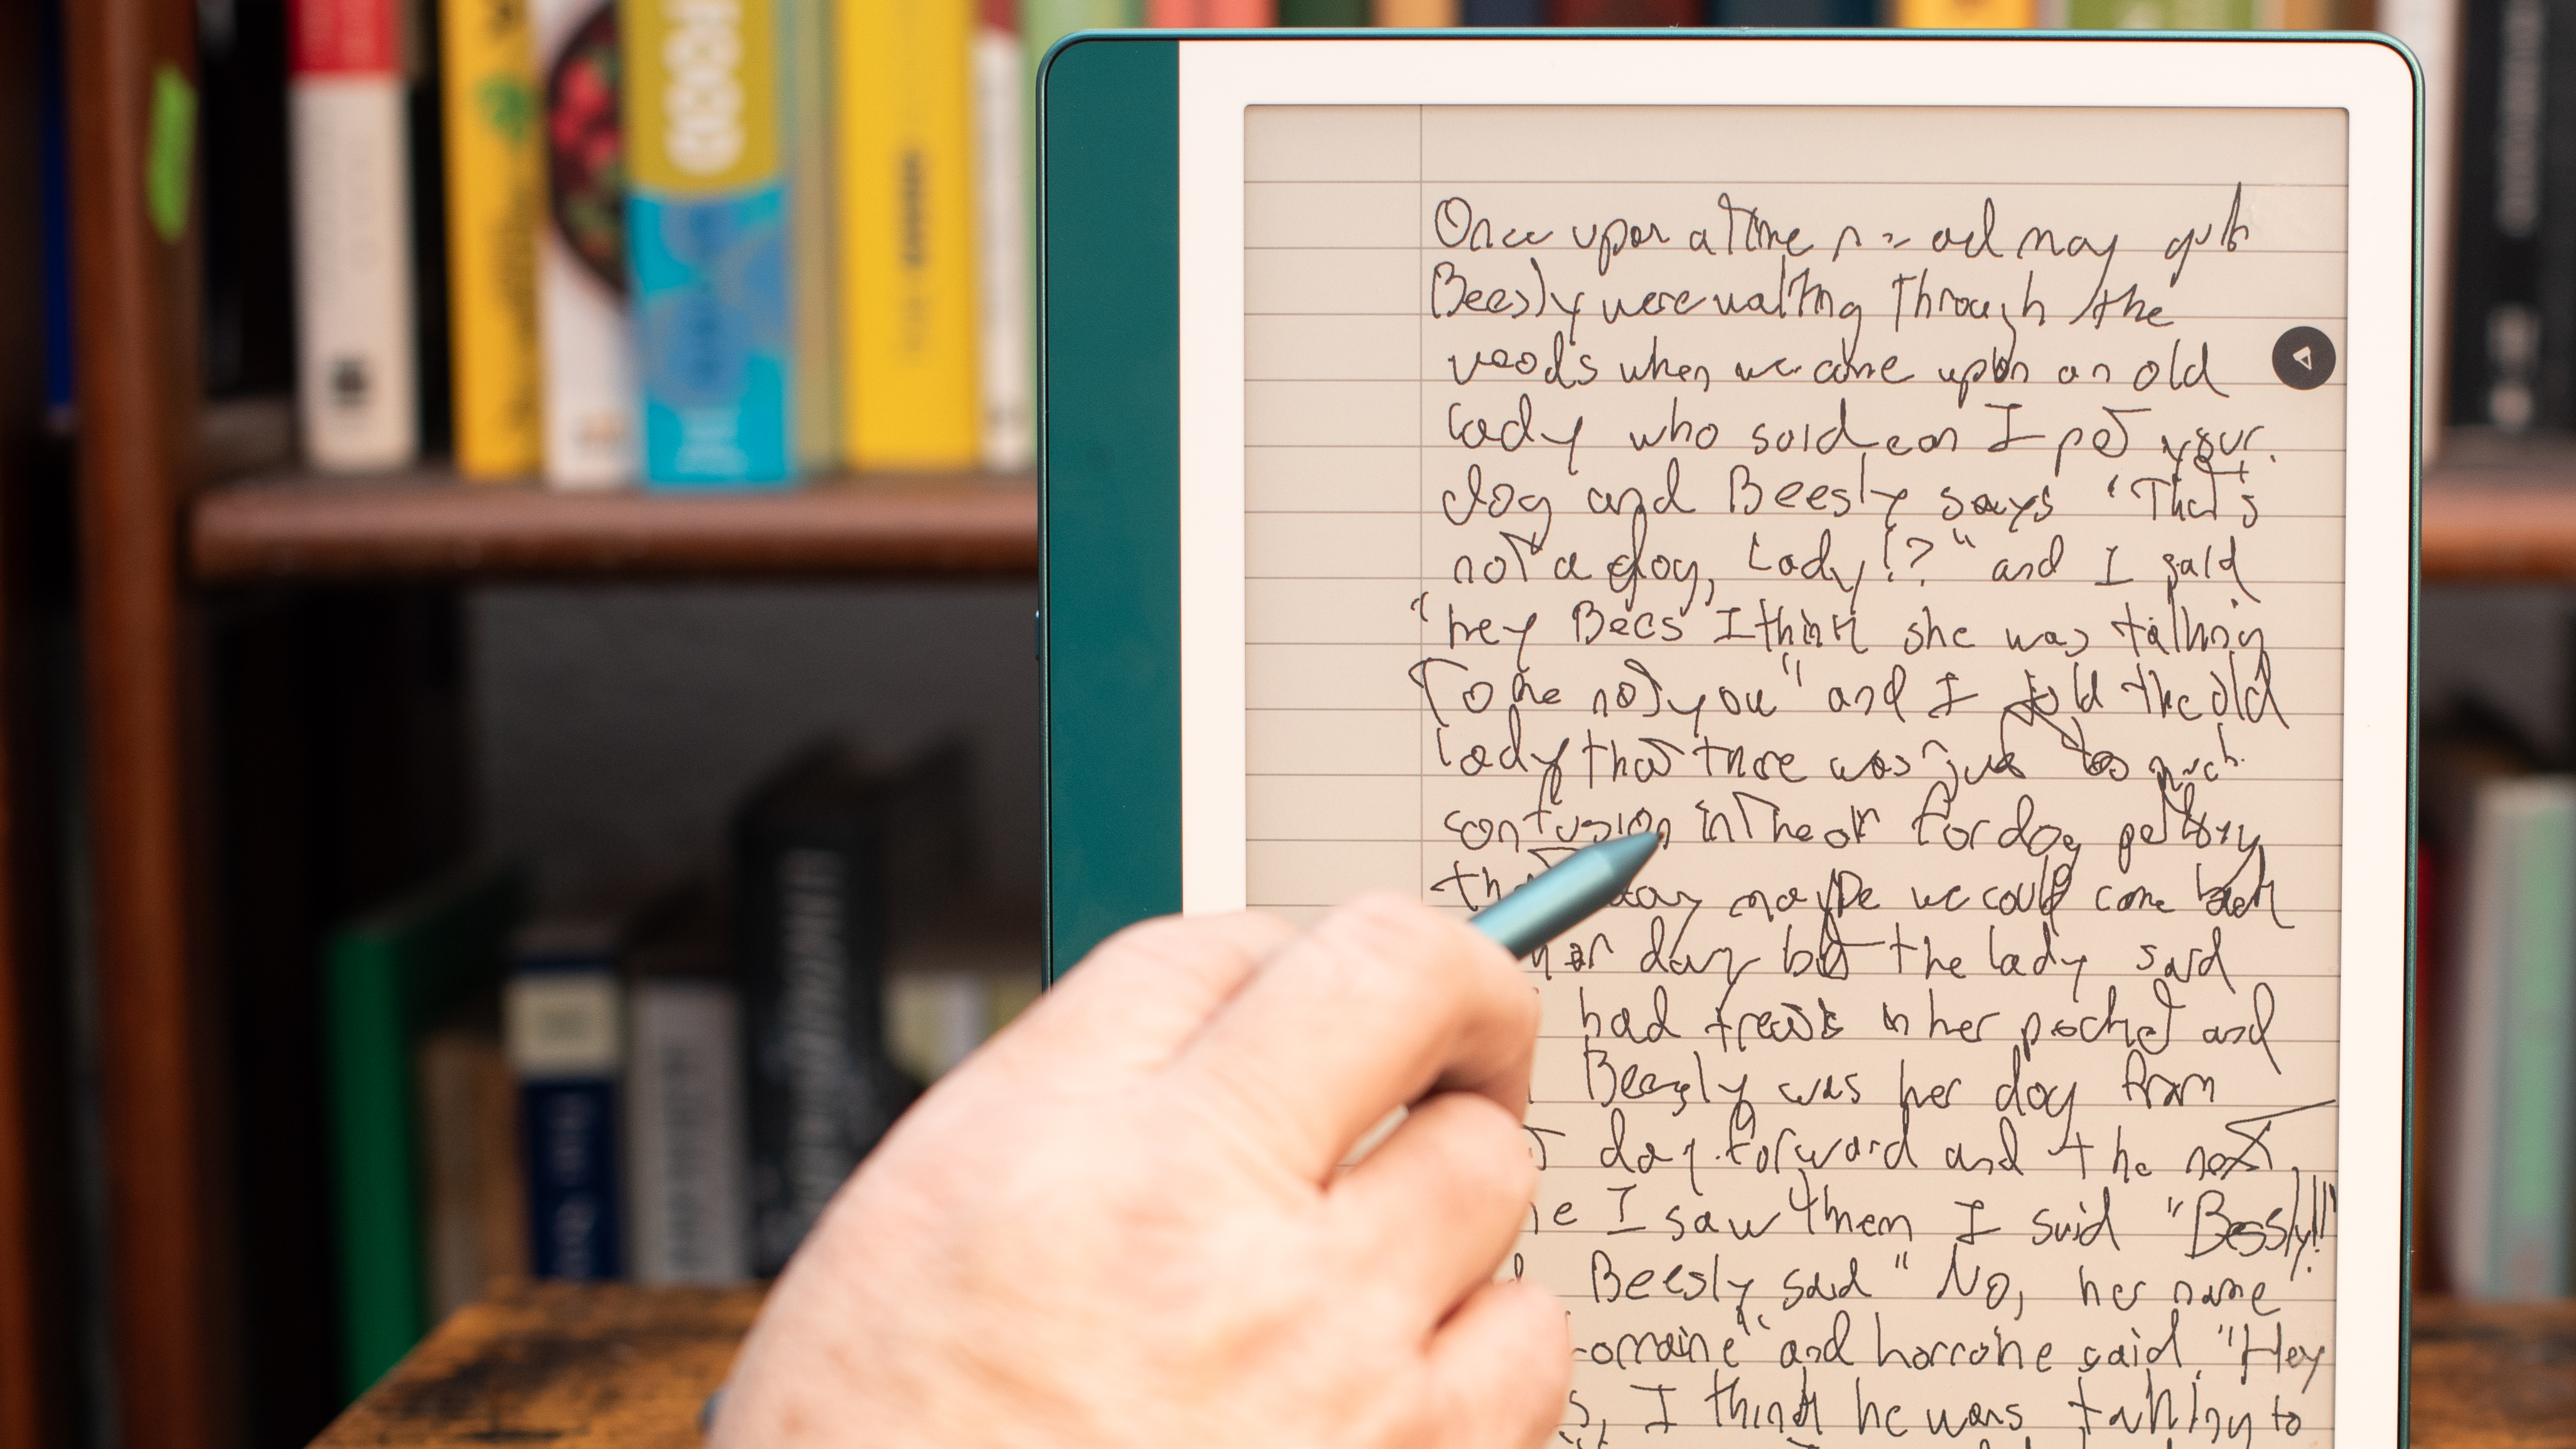 Once upon a time and my
Beesly were walking through the
woods when we came upon an old
lady who said can I pet your
dog and Beesly says "That's
not a dog, Lady!?" and I said
"hey Bees I think she was talking
To me not you" and I told the old
lady that there was just too much
confusion in the air for dog petting
day maybe we could come back
day but the lady said
had treats in her pocket and
Beesly was her dog from
day forward and the next
I saw them I said "Beesly!!!
Beesly said "No, her name
Lorraine" and Lorraine said "Hey
I think he was talking to